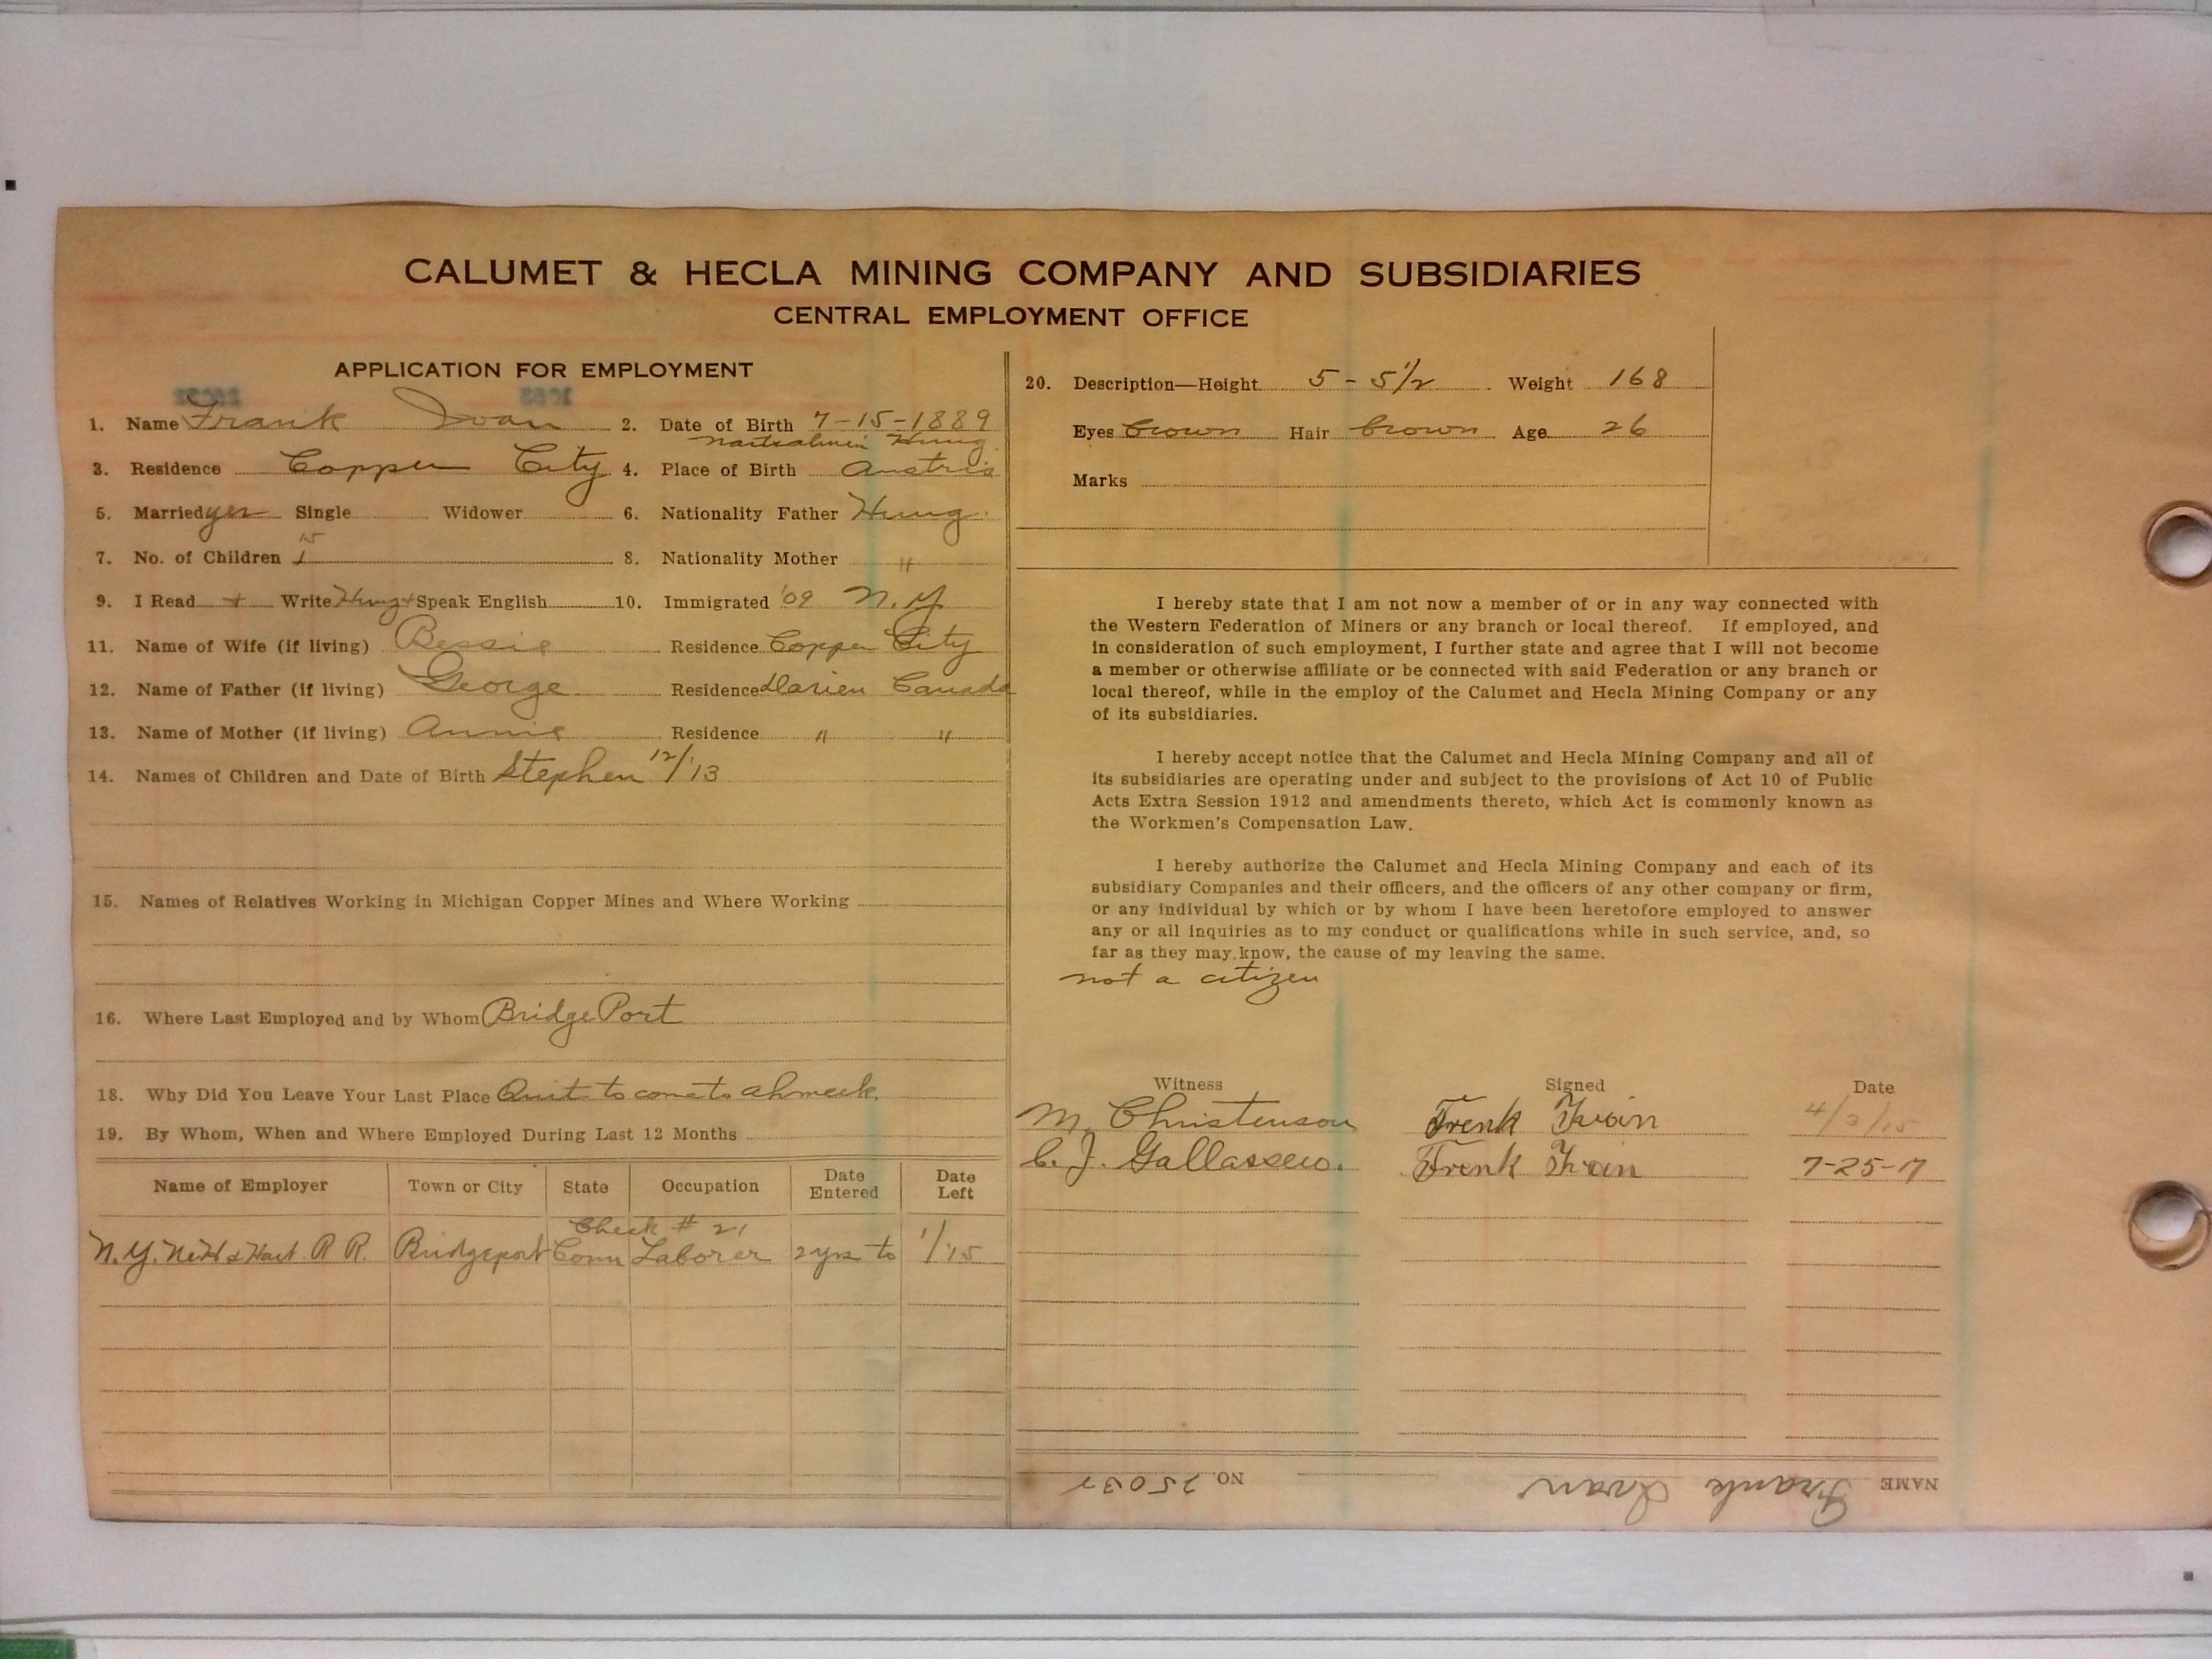 CALUMET & HECLA MINING COMPANY AND SUBSIDIARIES
CENTRAL EMPLOYMENT OFFICE
APPLICATION FOR EMPLOYMENT
1. Name Frank Ivan 2. Date of Birth 7-15-1889
Hung
3. Residence Copper City 4. Place of Birth Austria
5. Married yes Single Widower 6. Nationality Father Hung.
7. No. of Children 1 8. Nationality Mother "
9. I Read + Write Hung + Speak English 10. Immigrated '09 N.Y.
11. Name of Wife (if living) Bessie Residence Copper City
12. Name of Father (if living) George Residence Darien Canada
13. Name of Mother (if living) Annie Residence " "
14. Names of Children and Date of Birth Stephen 12/'13
15. Names of Relatives Working in Michigan Copper Mines and Where Working
16. Where Last Employed and by Whom Bridge Port
18. Why Did You Leave Your Last Place Quit to come to ahmeek.
19. By Whom, When and Where Employed During Last 12 Months
Name of Employer Town or City State Occupation Date Entered Date Left
Check # 21
N.Y. NeH & Hart R R. Bridgeport Conn Laborer 2 yrs to 1/'15
20. Description—Height 5 - 5 1/2 Weight 168
Eyes brown Hair brown Age 26
Marks
I hereby state that I am not now a member of or in any way connected with
the Western Federation of Miners or any branch or local thereof. If employed, and
in consideration of such employment, I further state and agree that I will not become
a member or otherwise affiliate or be connected with said Federation or any branch or
local thereof, while in the employ of the Calumet and Hecla Mining Company or any
of its subsidiaries.
I hereby accept notice that the Calumet and Hecla Mining Company and all of
its subsidiaries are operating under and subject to the provisions of Act 10 of Public
Acts Extra Session 1912 and amendments thereto, which Act is commonly known as
the Workmen's Compensation Law.
I hereby authorize the Calumet and Hecla Mining Company and each of its
subsidiary Companies and their officers, and the officers of any other company or firm,
or any individual by which or by whom I have been heretofore employed to answer
any or all inquiries as to my conduct or qualifications while in such service, and, so
far as they may know, the cause of my leaving the same.
not a citizen
Witness Signed Date
M. Christenson Frenk Ivain 4/3/15
C. J. Frenk Ivain 7-25-17
NAME Frank Ivan NO. 25032